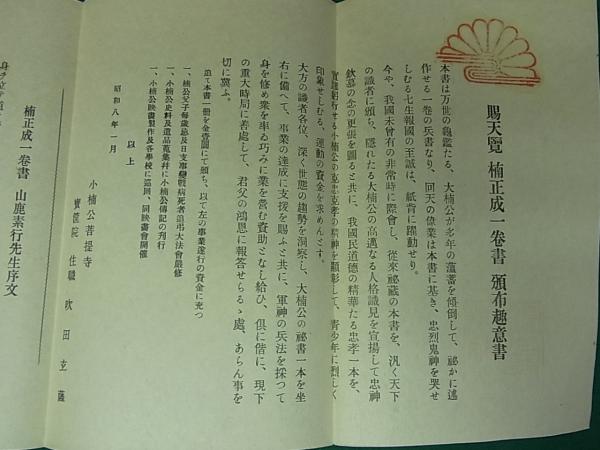 賜天覽 楠正成一卷書 頒布趣意書
本書は万世の龜鑑たる、大楠公が多年の薀蓄を傾倒して、祕かに述
作せる一卷の兵書なり、回天の偉業は本書に基き、忠烈鬼神を哭せ
しむる七生報國の至誠は、紙背に躍動せり。
今や、我國未曾有の非常時に際會し、從來祕藏の本書を、汎く天下
の識者に頒ち、隱れたる大楠公の高邁なる人格識見を宣揚して忠神
欽慕の念の更張を圖ると共に、我國民道德の精華たる忠孝一本を、
實踐躬行せる小楠公の克忠克孝の精神を顯彰して、青少年に烈しく
印象せしむる、運動の資金を求めんとす。
大方の識者各位、深く世態の趨勢を洞察し、大楠公の祕書一本を坐
右に備へて、事業の達成に支援を賜ふと共に、軍神の兵法を採つて
身を修め衆を率ゐ巧みに業を營む資助となし給ひ、俱に偕に、現下
の重大時局に善處して、君父の鴻恩に報答せらるゝ處、あらん事を
切に冀ふ。
追て本書一冊を金壹圓にて頒ち、以て左の事業遂行の資金に充つ
一、楠公父子每歲忌及日支事變戰病死者追弔大法會嚴修
一、小楠公史料及遺品蒐集幷に小楠公傳記の刊行
一、小楠公映畫製作及各學校に巡回、同映畫會開催
以上
昭和八年一月
小楠公菩提寺
寶筐院 住職 吹田
楠正成一卷書 山鹿素行先生序文